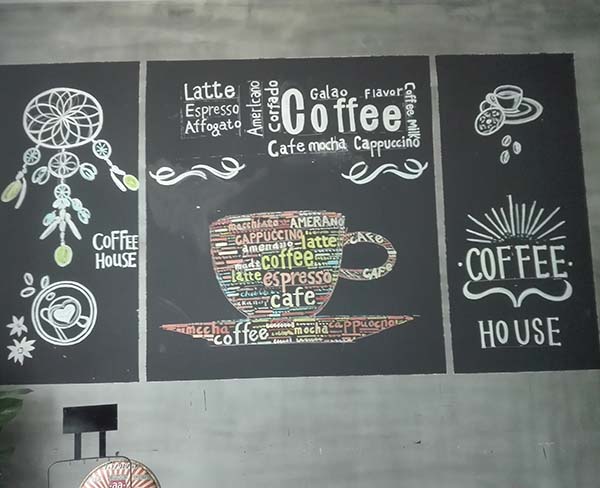 COFFEE
HOUSE
Latte
Espresso
Affogato
Americano
Corfado
Galao Flavor
Coffee
Coffee Milk
Cafe mocha Cappuccino
macchiato AMERANO
CAPPUCCINO latte
coffee
latte espresso
cafe
CAFE
CAFE
mocha cappuocno
coffee mocha
COFFEE
HOUSE